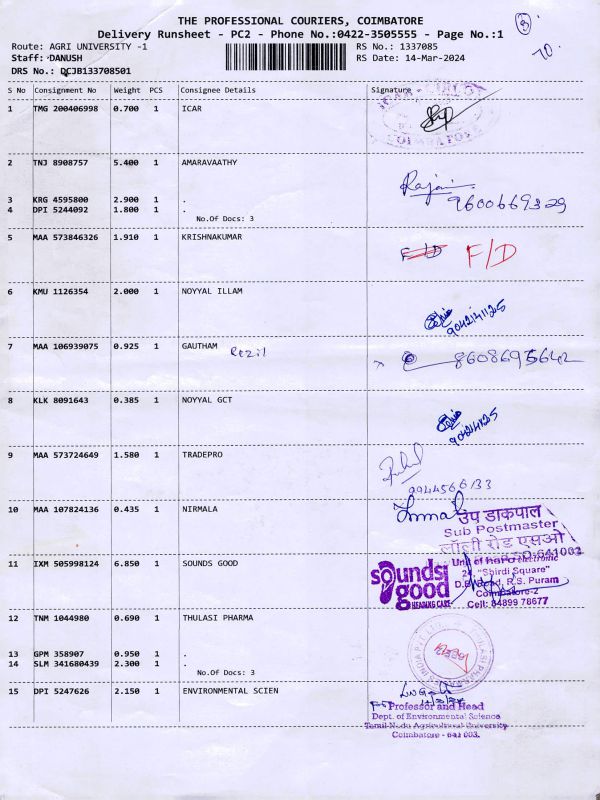 THE PROFESSIONAL COURIERS, COIMBATORE
Delivery Runsheet - PC2 - Phone No.:0422-3505555 - Page No.:1
3
70.
Route: AGRI UNIVERSITY -1 RS No.: 1337085
Staff: DANUSH RS Date: 14-Mar-2024
DRS No.: DCJB133708501
S No Consignment No Weight PCS Consignee Details Signature
1 TMG 200406998 0.700 1 ICAR
COIMBATORE
2 TNJ 8908757 5.400 1 AMARAVAATHY
Rajan
3 KRG 4595800 2.900 1 . 9600669329
4 DPI 5244092 1.800 1 .
No.Of Docs: 3
5 MAA 573846326 1.910 1 KRISHNAKUMAR F/D F/D
6 KMU 1126354 2.000 1 NOYYAL ILLAM
9042141125
7 MAA 106939075 0.925 1 GAUTHAM
8608695642
8 KLK 8091643 0.385 1 NOYYAL GCT
9 MAA 573724649 1.580 1 TRADEPRO
9944566133
10 MAA 107824136 0.435 1 NIRMALA
उप डाकपाल
Sub Postmaster
लॉली रोड एसओ
11 IXM 505998124 6.850 1 SOUNDS GOOD
sounds good
HEARING CARE
24, "Shirdi Square"
R.S. Puram
Coimbatore-2
Cell: 84899 78677
12 TNM 1044980 0.690 1 THULASI PHARMA
13 GPM 358907 0.950 1 .
14 SLM 341680439 2.300 1 .
No.Of Docs: 3
15 DPI 5247626 2.150 1 ENVIRONMENTAL SCIEN
Professor and Head
Dept. of Environmental Science
Tamil Nadu Agricultural University
Coimbatore - 641 003.